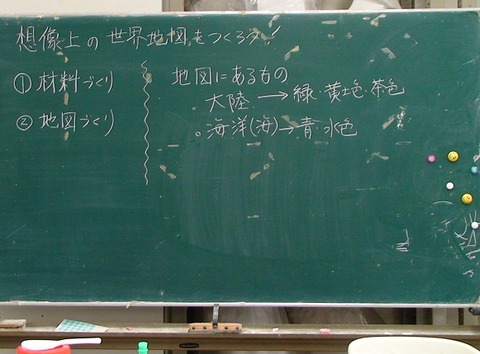 想像上の世界地図をつくろう!
①材料づくり
②地図づくり
地図にあるもの
。大陸→緑・黄土色・茶色
。海洋(海)→青・水色